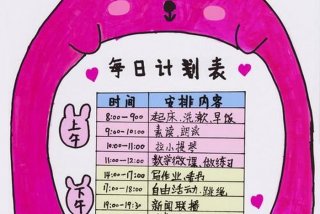 每日计划表
时间 安排内容
上午
8:00-9:00 起床、洗漱、早饭
9:00-10:00 素读、朗读
10:00-11:00 拉小提琴
11:00-12:00 数学微课、做练习
下午
14:00-17:00 写作业、看书
17:00-18:00 自由活动、跳绳
19:00-19:30 新闻联播